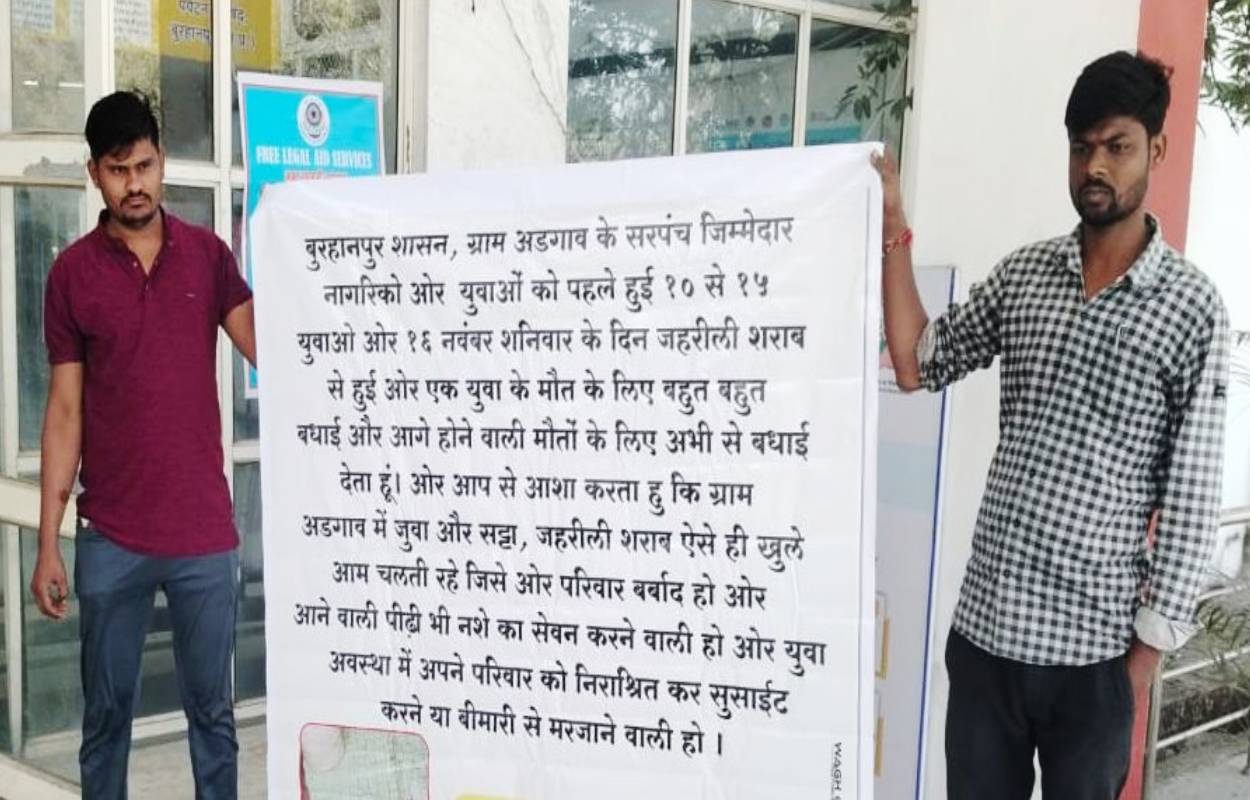 बुरहानपु
FREE LEGAL AID SERVICES
बुरहानपुर शासन, ग्राम अडगाव के सरपंच जिम्मेदार
नागरिको ओर युवाओं को पहले हुई १० से १५
युवाओ ओर १६ नवंबर शनिवार के दिन जहरीली शराब
से हुई ओर एक युवा के मौत के लिए बहुत बहुत
बधाई और आगे होने वाली मौतों के लिए अभी से बधाई
देता हूं। ओर आप से आशा करता हु कि ग्राम
अडगाव में जुवा और सट्टा, जहरीली शराब ऐसे ही खुले
आम चलती रहे जिसे ओर परिवार बर्बाद हो ओर
आने वाली पीढी भी नशे का सेवन करने वाली हो ओर युवा
अवस्था में अपने परिवार को निराश्रित कर सुसाईट
करने या बीमारी से मरजाने वाली हो ।
WAGH